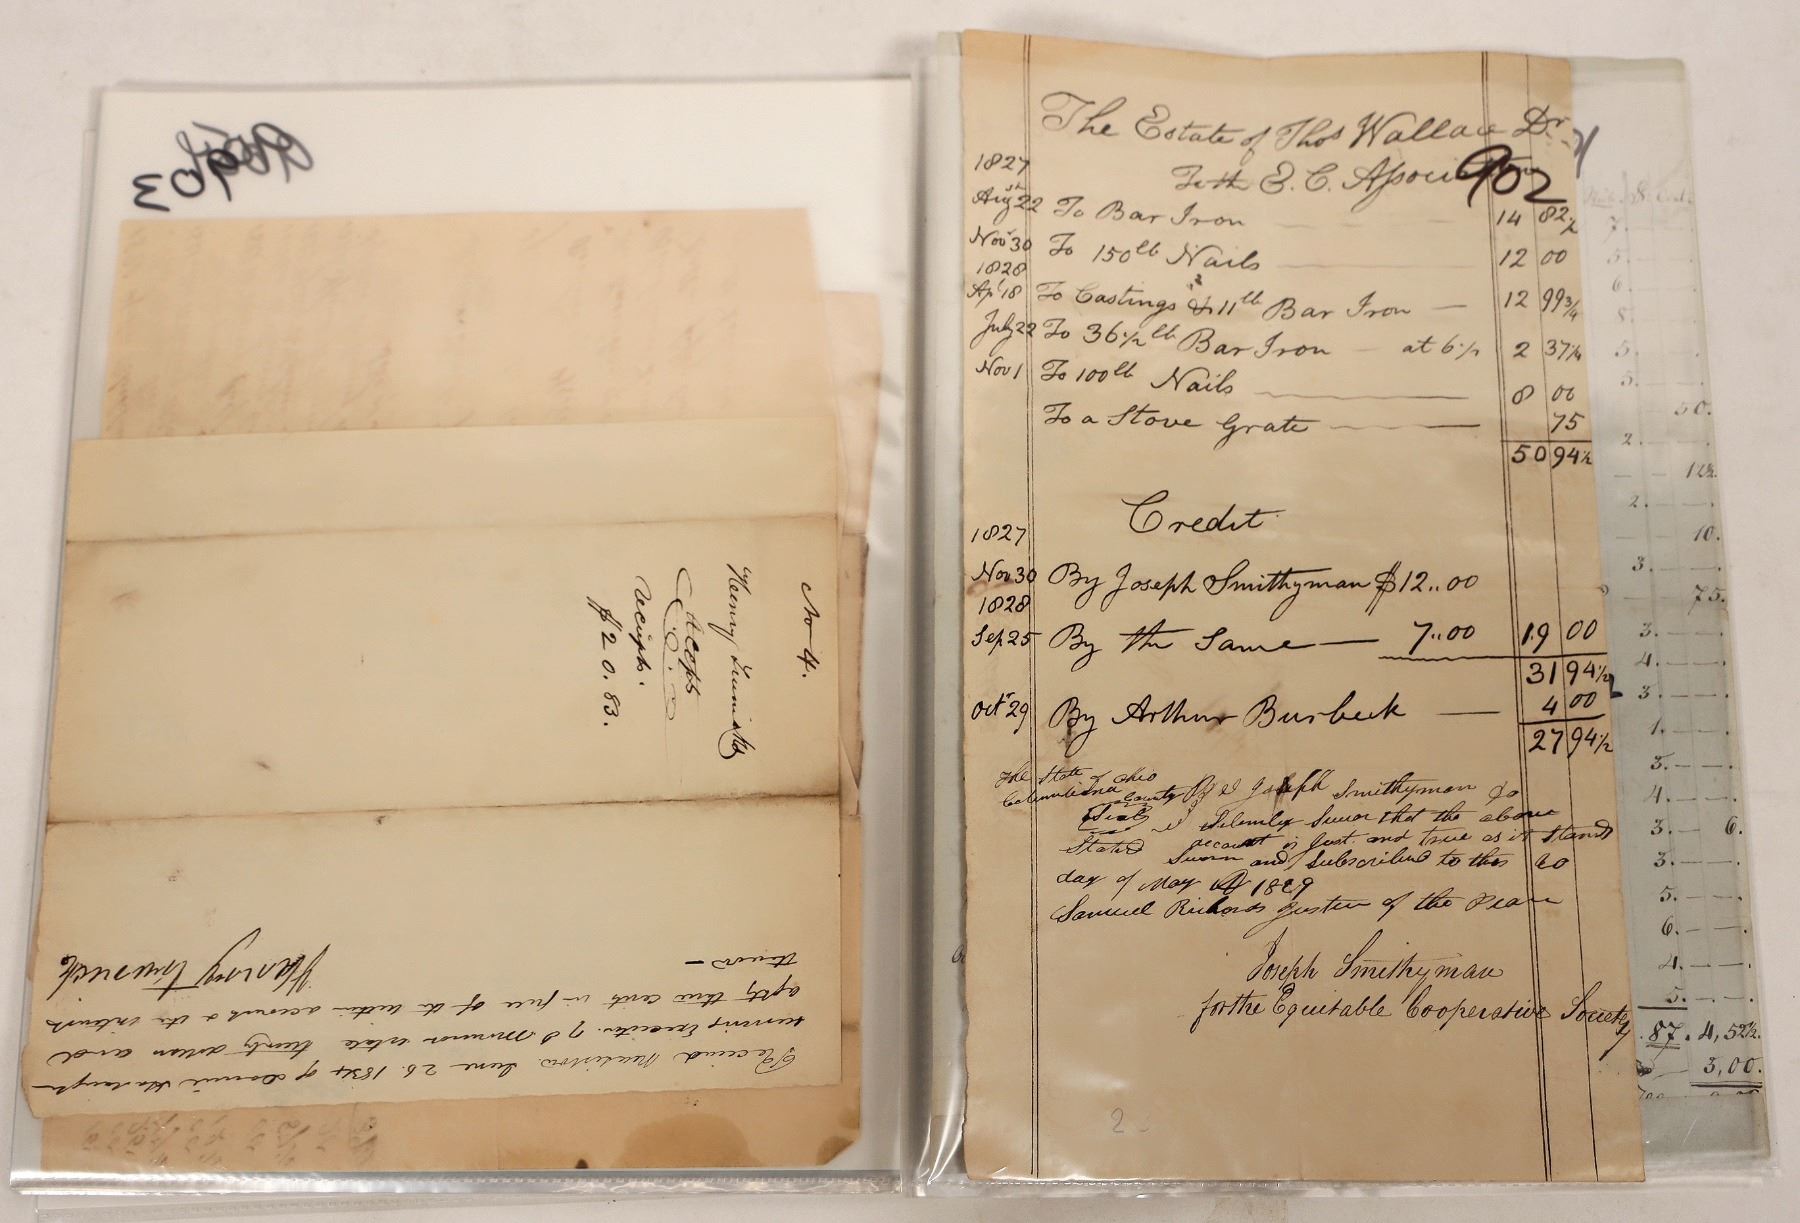 903
No 4.
Henry
Accopt
receipt.
$20.83.
Received Madison June 26. 1834 of Daniel
running Executor of D estate twenty dollars and
eighty three cents in full of the within account & the interest
thereon —
902
The Estate of Thos Wallace Dr
To the E. C. Associ
1827
Augst 22 To Bar Iron 14 82 1/2
Novr 30 To 150 lb Nails 12 00
1828
Apl 18 To Castings & 11 lb Bar Iron — 12 99 3/4
July 22 To 36 1/2 lb Bar Iron — at 6 1/2 2 37 1/4
Nov 1 To 100 lb Nails 8 00
To a Stove Grate 75
50 94 1/2
Credit
1827
Nov 30 By Joseph Smithyman $12..00
1828
Sep. 25 By the Same — 7..00 19 00
31 94 1/2
4 00
Octr 29 By Arthur Burbeck —
27 94 1/2
The State of Ohio
Columbiana County I Joseph Smithyman do
Seal Solemnly Swear that the above
Stated account is Just and true as it Stands
Sworn and Subscribed to this 20
day of May AD 1829
Samuel Richards Justice of the Peace
Joseph Smithyman
for the Equitable Cooperative Society
2
7.
5.
6.
8.
5.
5.
50.
2.
12 1/2.
2.
10.
3.
75.
3.
4.
3.
1.
3.
4.
3. 6.
3.
5.
6.
4.
5.
87. 4,52 1/2.
3,00.